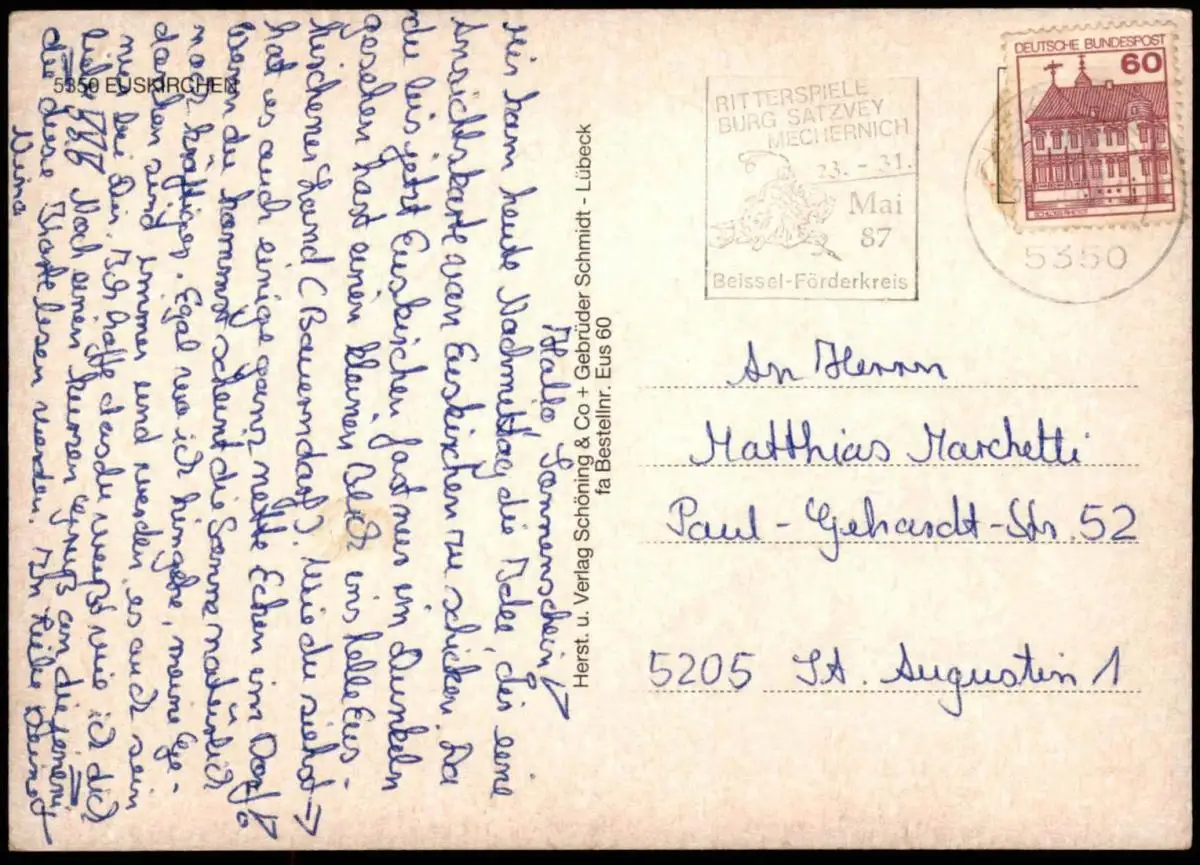 5350 EUSKIRCHEN
Hallo Sonnenschein!
Mir kam heute Nachmittag die Idee, dir eine
Ansichtskarte von Euskirchen zu schicken. Da
du bis jetzt Euskirchen fast nur im Dunkeln
gesehen hast einen kleinen Blick ins helle Eus-
kirchener Land (Bauerndorf). Wie du siehst →
hat es auch einige ganz nette Ecken im Dorf!
Wenn du kommst scheint die Sonne natürlich
noch kräftiger. Egal wo ich hingehe, meine Ge-
danken sind immer und werden es auch sein
nur bei Dir. Ich hoffe das du weißt wie ich dich
liebe. Noch einen kurzen Gruß an diejenigen
die diese Karte lesen werden. Ich liebe Deine
Herst. u. Verlag Schöning & Co + Gebrüder Schmidt - Lübeck
fa Bestellnr. Eus 60
RITTERSPIELE
BURG SATZVEY
MECHERNICH
23. - 31.
Mai
87
Beissel-Förderkreis
DEUTSCHE BUNDESPOST
60
5350
An Herrn
Matthias Marchetti
Paul-Gehardt-Str. 52
5205 St. Augustin 1